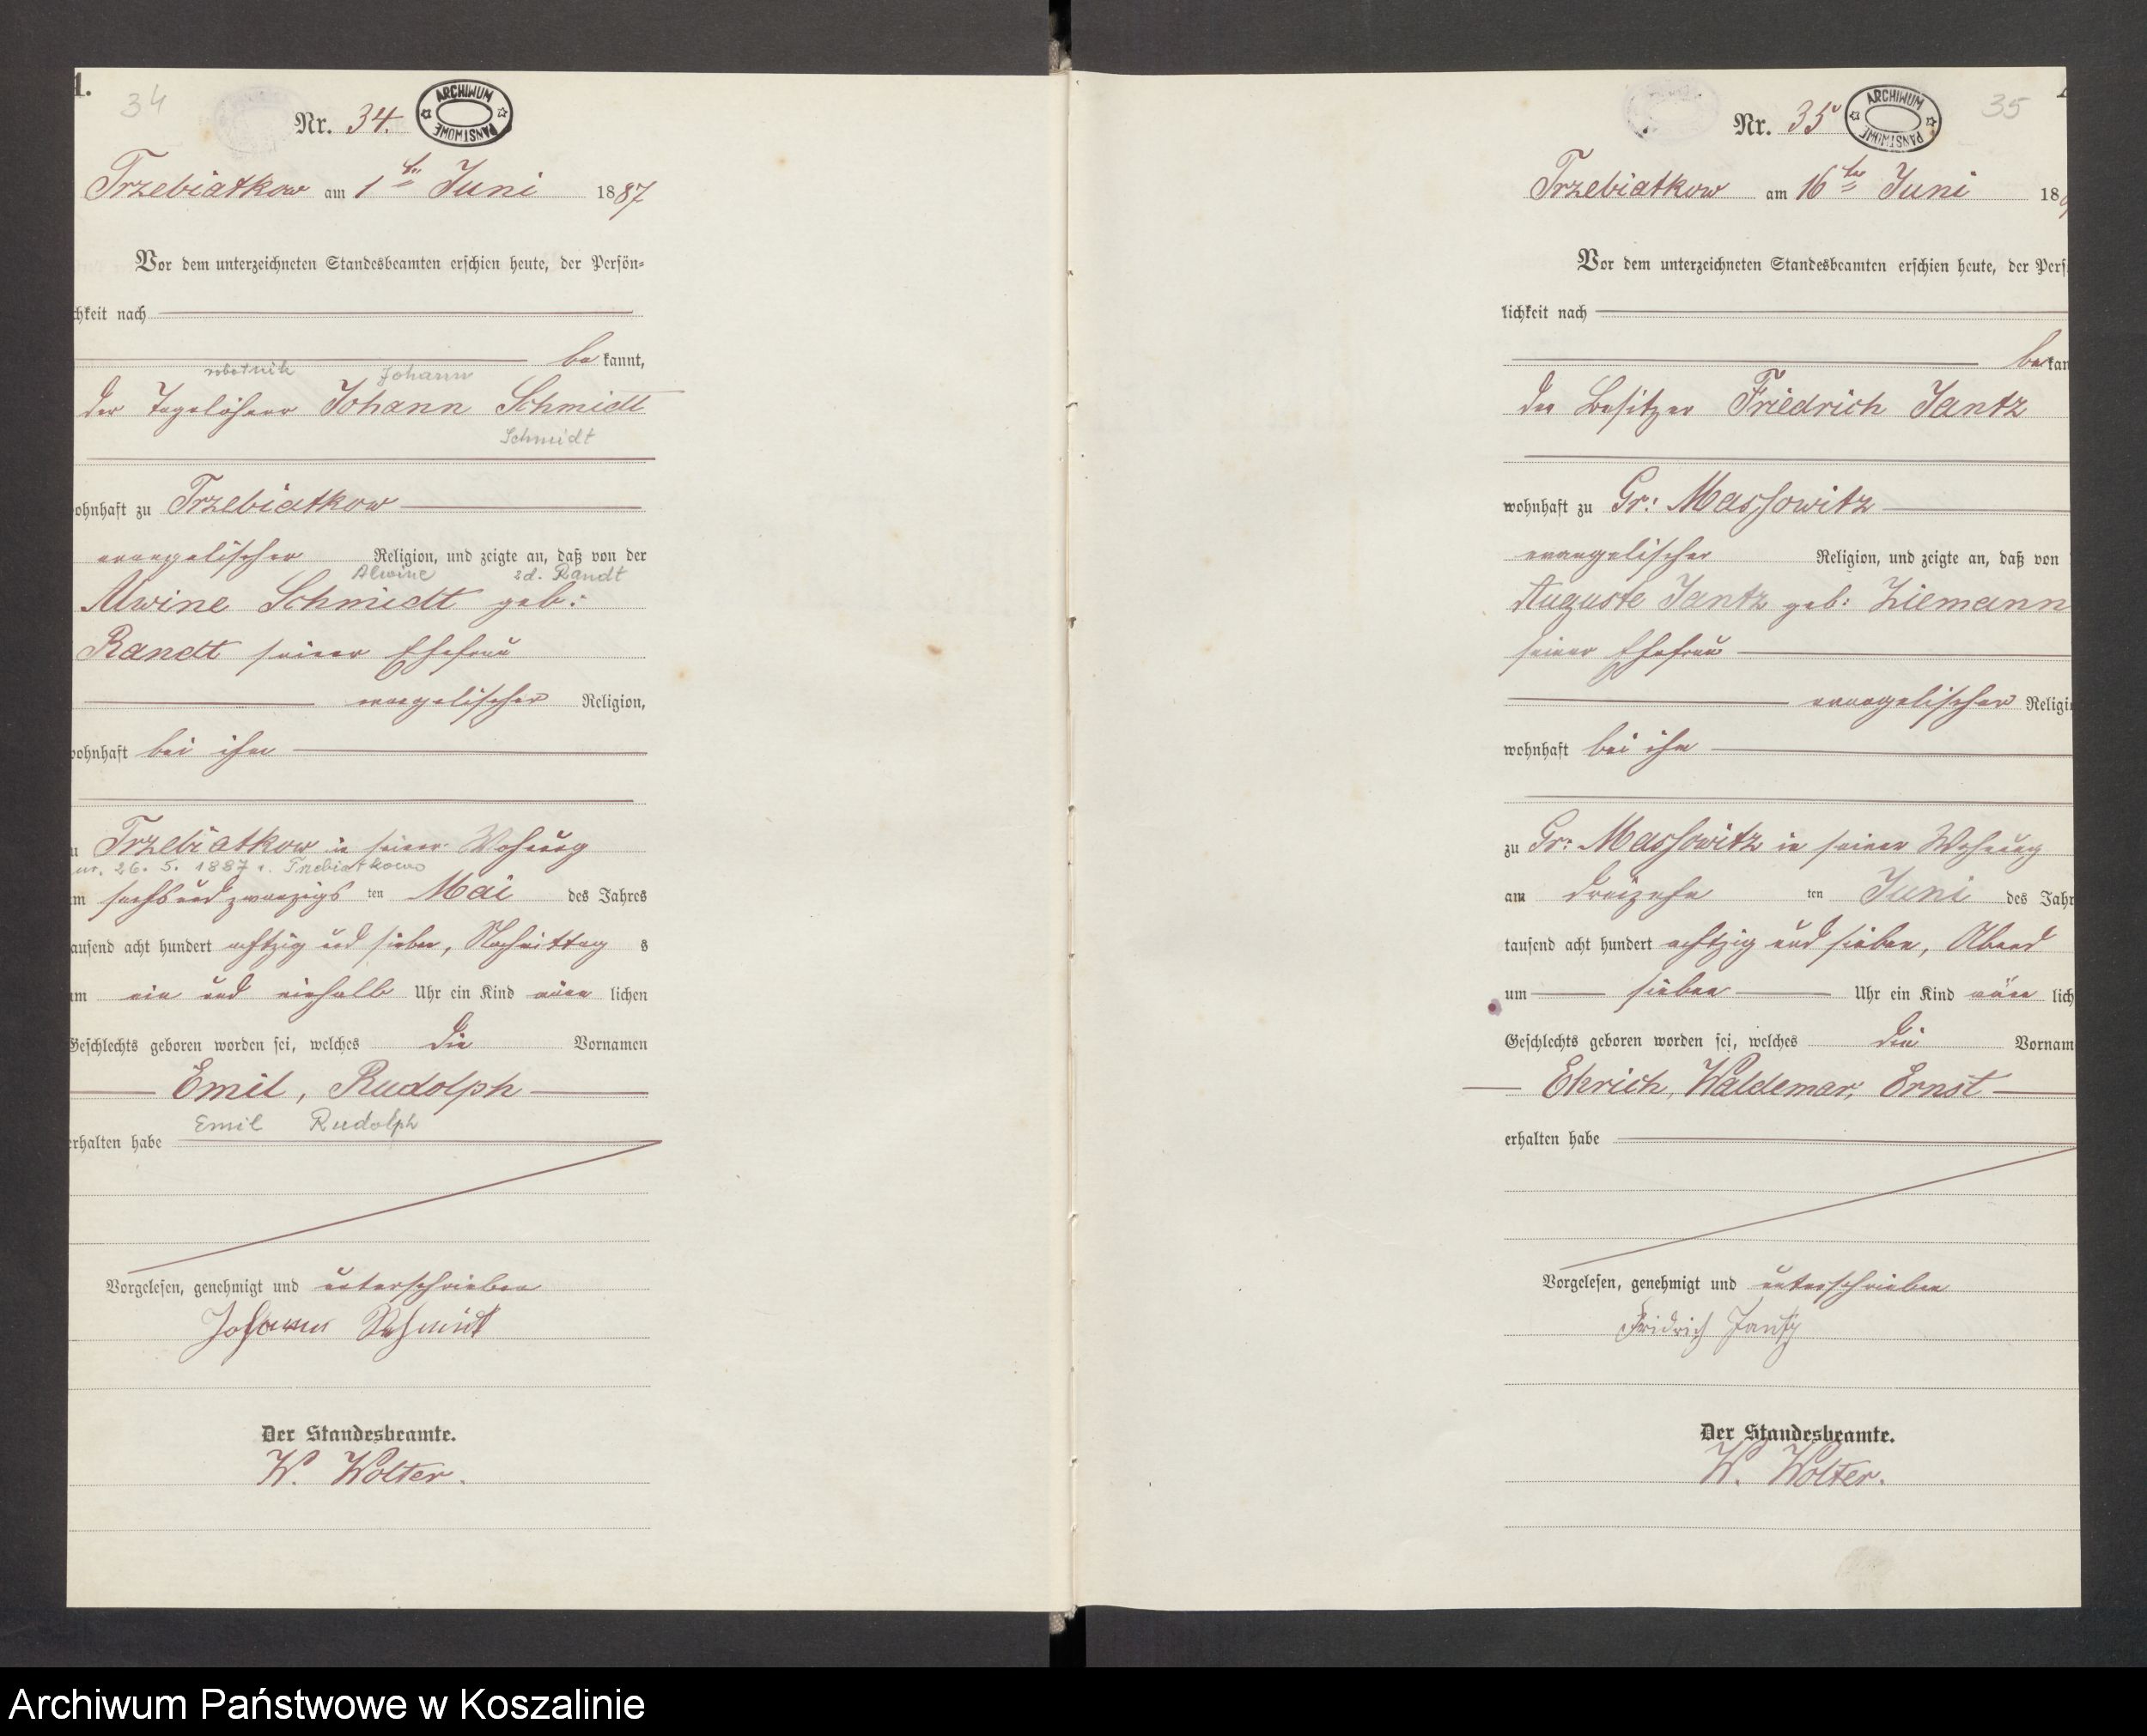 1.
34
Nr. 34.
ARCHIWUM PAŃSTWOWE
Trzebiatkow am 1ten Juni 1887
Vor dem unterzeichneten Standesbeamten erschien heute, der Persön-
chkeit nach
be kannt,
robotnik Johann
der Tagelöhner Johann Schmidt
Schmidt
ohnhaft zu Trzebiatkow
evangelischer Religion, und zeigte an, daß von der
Alwine zd. Randt
Alwine Schmidt geb:
Randt seiner Ehefrau
evangelischer Religion,
wohnhaft bei ihm
u Trzebiatkow in seiner Wohnung
ur. 26. 5. 1887 r. Trzebiatkowo
m sechsundzwanzigs ten Mai des Jahres
ausend acht hundert achtzig und sieben, Nachmittag s
um ein und einhalb Uhr ein Kind männ lichen
Geschlechts geboren worden sei, welches die Vornamen
Emil, Rudolph
Emil Rudolph
erhalten habe
Vorgelesen, genehmigt und unterschrieben
Johann Schmidt
Der Standesbeamte.
W. Wolter.
35
Nr. 35
ARCHIWUM PAŃSTWOWE
Trzebiatkow am 16ten Juni 18
Vor dem unterzeichneten Standesbeamten erschien heute, der Pers
lichkeit nach
be kan
der Besitzer Friedrich Jantz
wohnhaft zu Gr: Massowitz
evangelischer Religion, und zeigte an, daß von
Auguste Jantz geb: Ziemann
seiner Ehefrau
evangelischer Religi
wohnhaft bei ihm
zu Gr: Massowitz in seiner Wohnung
am dreizehn ten Juni des Jahr
tausend acht hundert achtzig und sieben, Abend
um sieben Uhr ein Kind männ lich
Geschlechts geboren worden sei, welches die Vornam
Ehrich, Waldemar, Ernst
erhalten habe
Vorgelesen, genehmigt und unterschrieben
Fridrich Jantz
Der Standesbeamte.
W. Wolter.
Archiwum Państwowe w Koszalinie